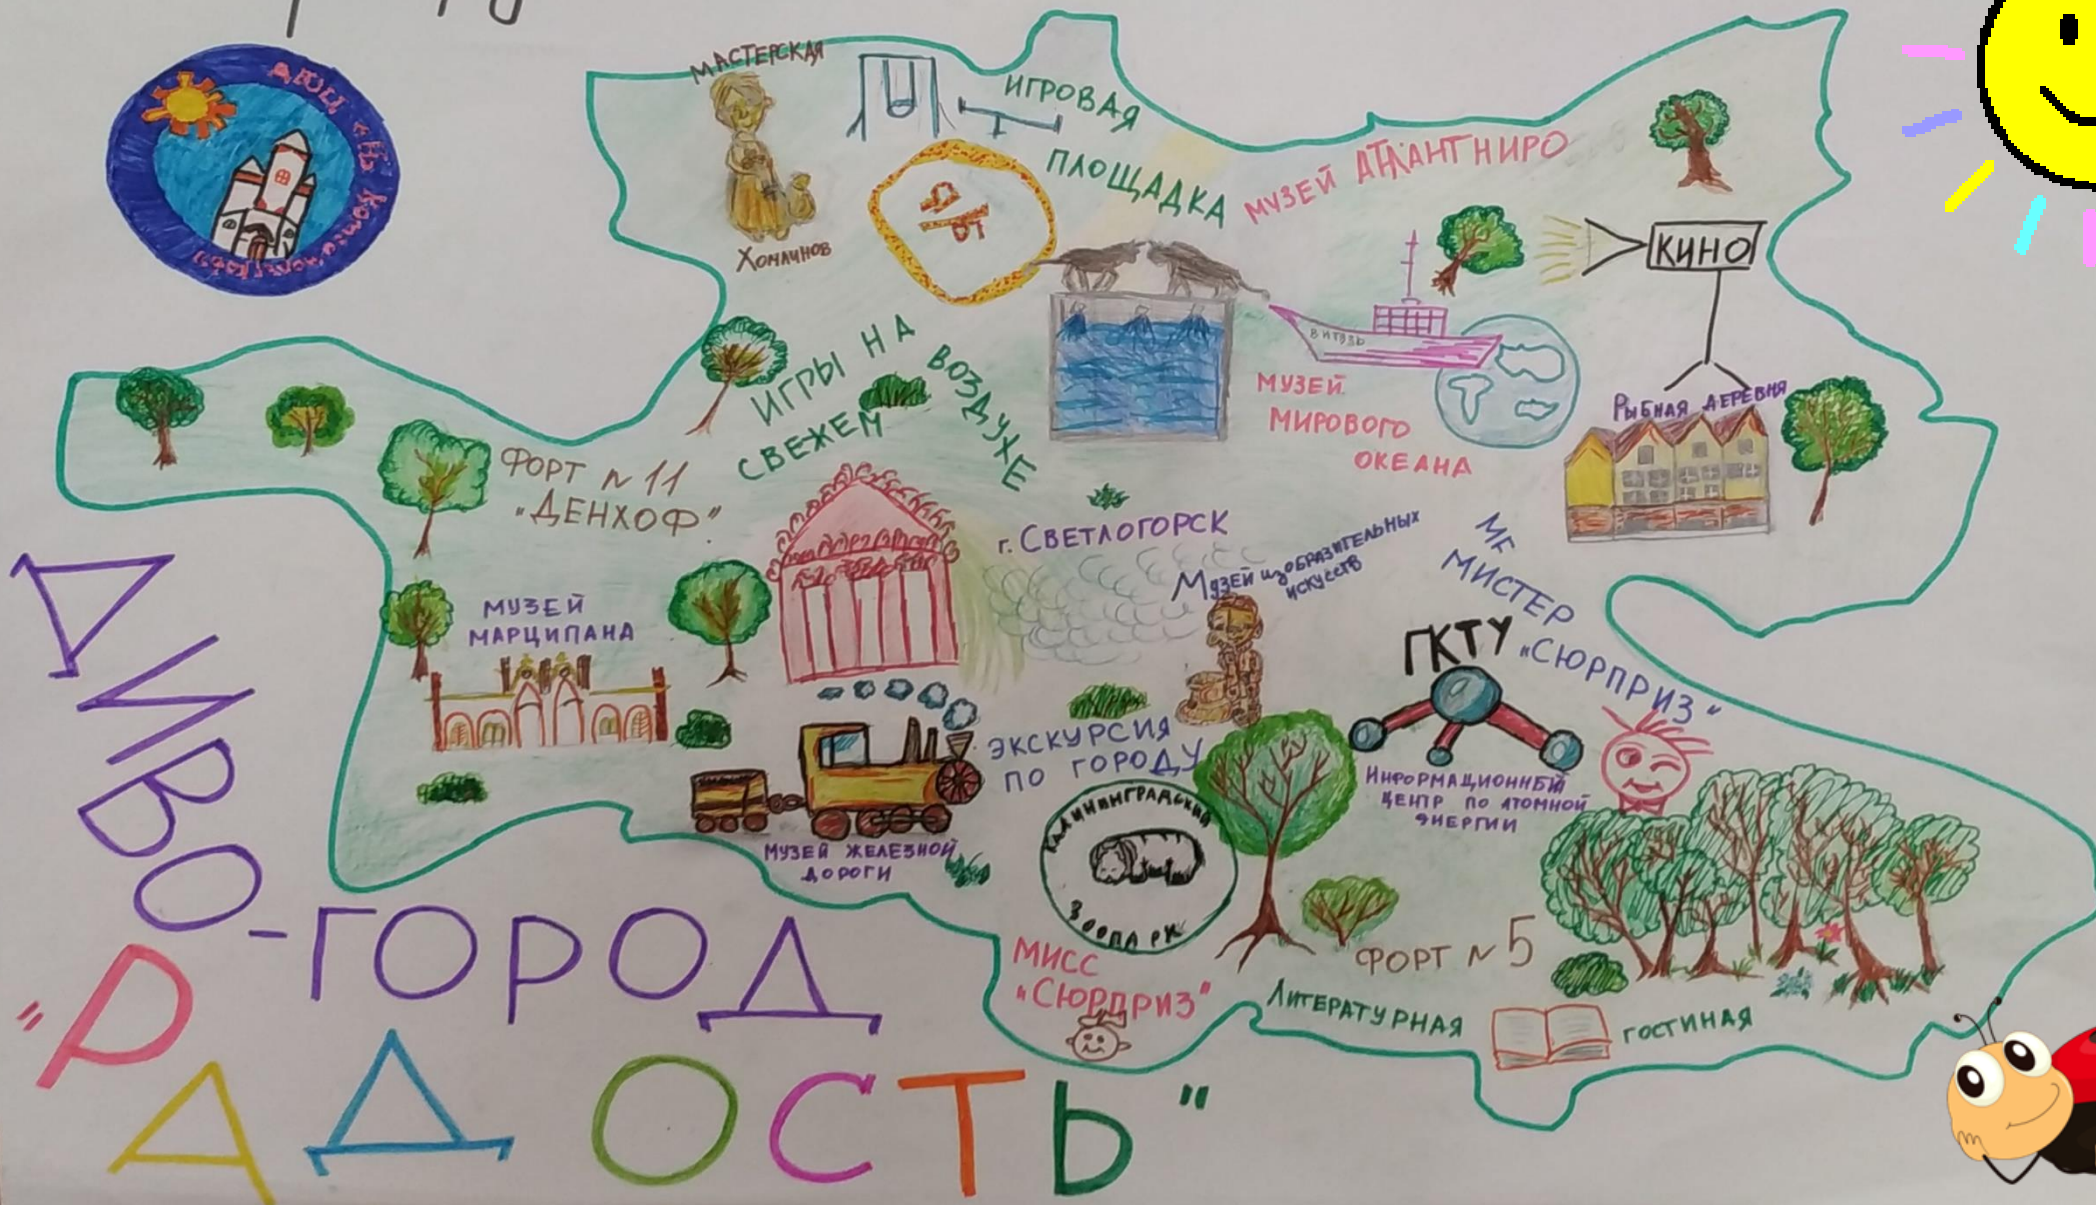 МАСТЕРСКАЯ
ХОМЛИНОВ
ИГРОВАЯ
ПЛОЩАДКА
МУЗЕЙ АТЛАНТНИРО
КИНО
ВИТЯЗЬ
МУЗЕЙ
МИРОВОГО
ОКЕАНА
РЫБНАЯ ДЕРЕВНЯ
ИГРЫ НА
СВЕЖЕМ ВОЗДУХЕ
ФОРТ N 11
"ДЕНХОФ"
г. СВЕТЛОГОРСК
МУЗЕЙ ИЗОБРАЗИТЕЛЬНЫХ
ИСКУССТВ
МУЗЕЙ
МАРЦИПАНА
МИСТЕР
"СЮРПРИЗ"
ГКТУ
ИНФОРМАЦИОННЫЙ
ЦЕНТР ПО АТОМНОЙ
ЭНЕРГИИ
ЭКСКУРСИЯ
ПО ГОРОДУ
МУЗЕЙ ЖЕЛЕЗНОЙ
ДОРОГИ
КАЛИНИНГРАДСКИЙ
ЗООПАРК
МИСС
"СЮРПРИЗ"
ФОРТ N 5
ЛИТЕРАТУРНАЯ ГОСТИНАЯ
ДИВО-ГОРОД
"РАДОСТЬ"